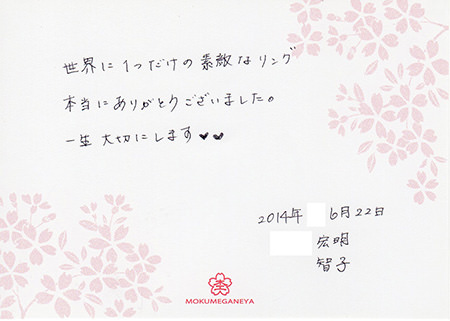 世界に1つだけの素敵なリング
本当にありがとうございました。
一生大切にします♥♥
2014年 6月22日
宏明
智子
MOKUMEGANEYA